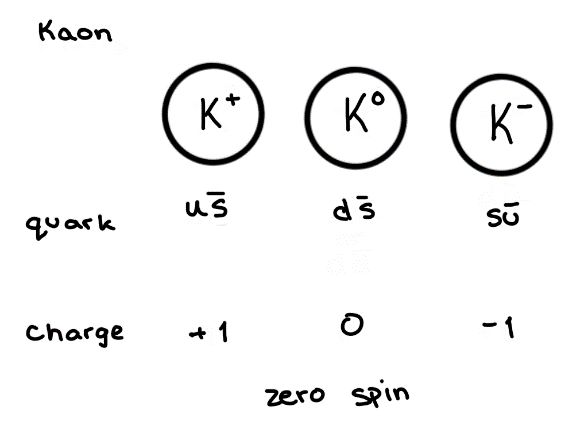 Kaon
K⁺ K⁰ K⁻
quark us̄ ds̄ sū
charge +1 0 -1
zero spin